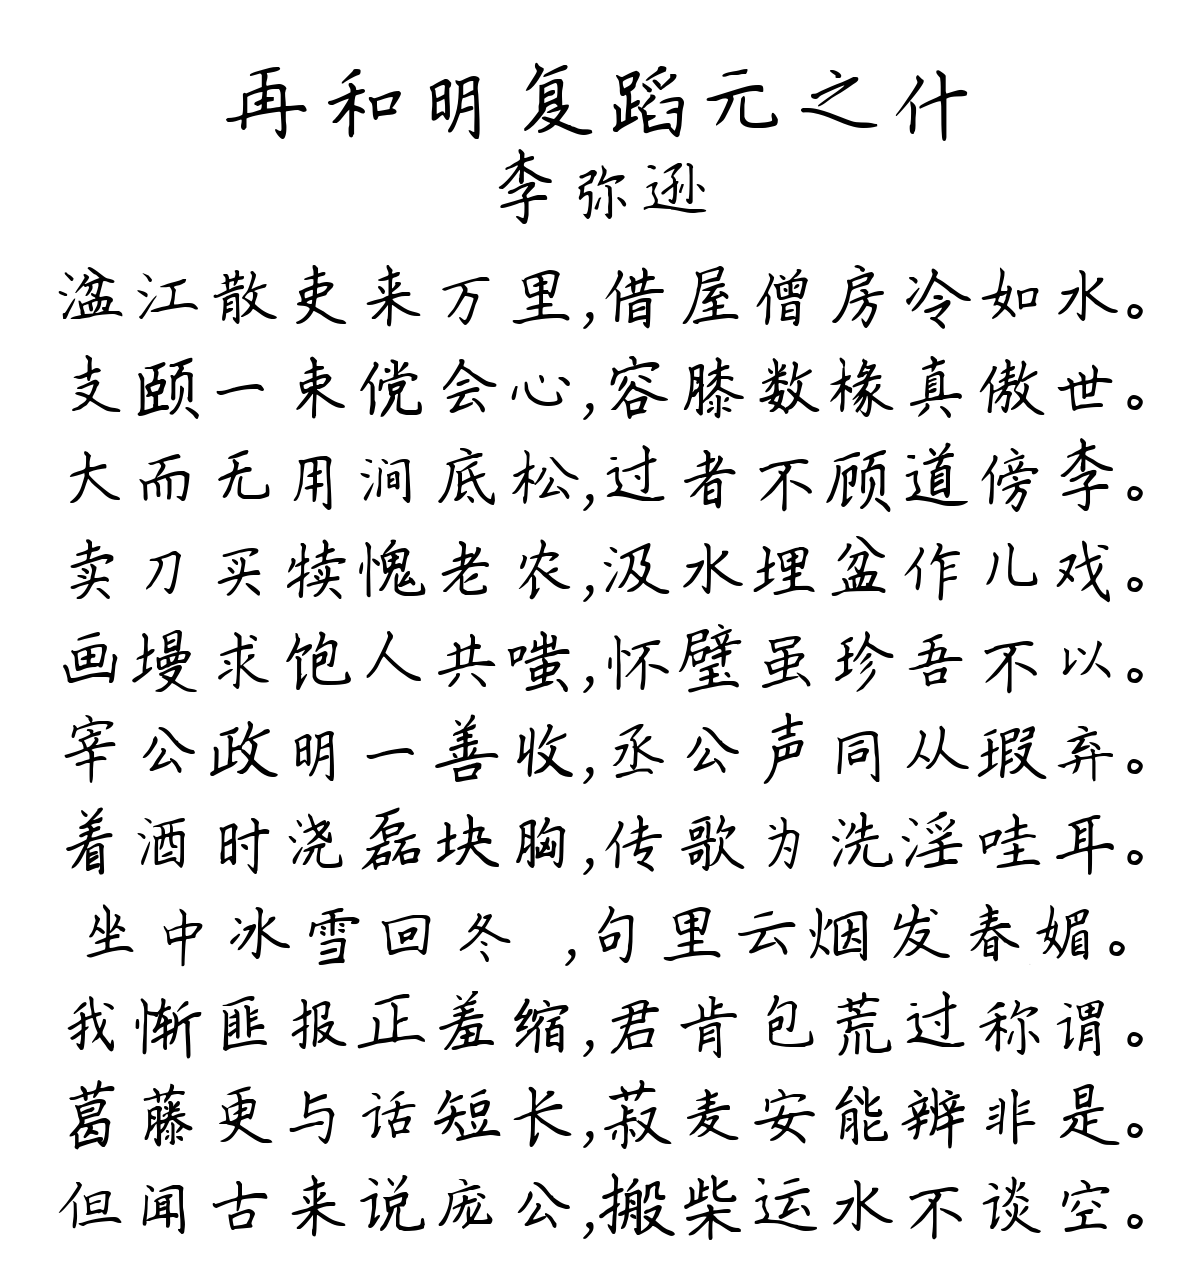 再和明复蹈元之什
李弥逊
湓江散吏来万里,借屋僧房冷如水。
支颐一束傥会心,容膝数椽真傲世。
大而无用涧底松,过者不顾道傍李。
卖刀买犊愧老农,汲水埋盆作儿戏。
画墁求饱人共嗤,怀璧虽珍吾不以。
宰公政明一善收,丞公声同从瑕弃。
着酒时浇磊块胸,传歌为洗淫哇耳。
坐中冰雪回冬 ,句里云烟发春媚。
我惭匪报正羞缩,君肯包荒过称谓。
葛藤更与话短长,菽麦安能辨非是。
但闻古来说庞公,搬柴运水不谈空。